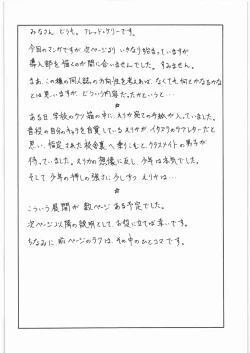 みなさん どうも。フレッド・ケリーです。
今回のマンガですが、次ページより いきなり始まっていますが
導入部を描くのが間に合いませんでした。すみません。
まあ、この種の同人誌の方向性を考えれば、なくても何とかなるかな
とは思いますが、どういう内容だったかというと…
☆
ある日 学校のクツ箱の中に、えりか宛ての手紙が入っていました。
普段の自分のキャラを自覚している えりかが、イタズラのラブレターだと
思い、指定された校舎裏へ乗りこむと クラスメイトの男子が
待っていました。えりかの想像に反し、少年は本気でした。
そして、少年の押しの強さに少しずつ えりかは…
☆
こういう展開が 数ページ ある予定でした。
次ページ以降の説明として、お役に立てば幸いです。
ちなみに 前ページのラフは、その中のひとコマです。